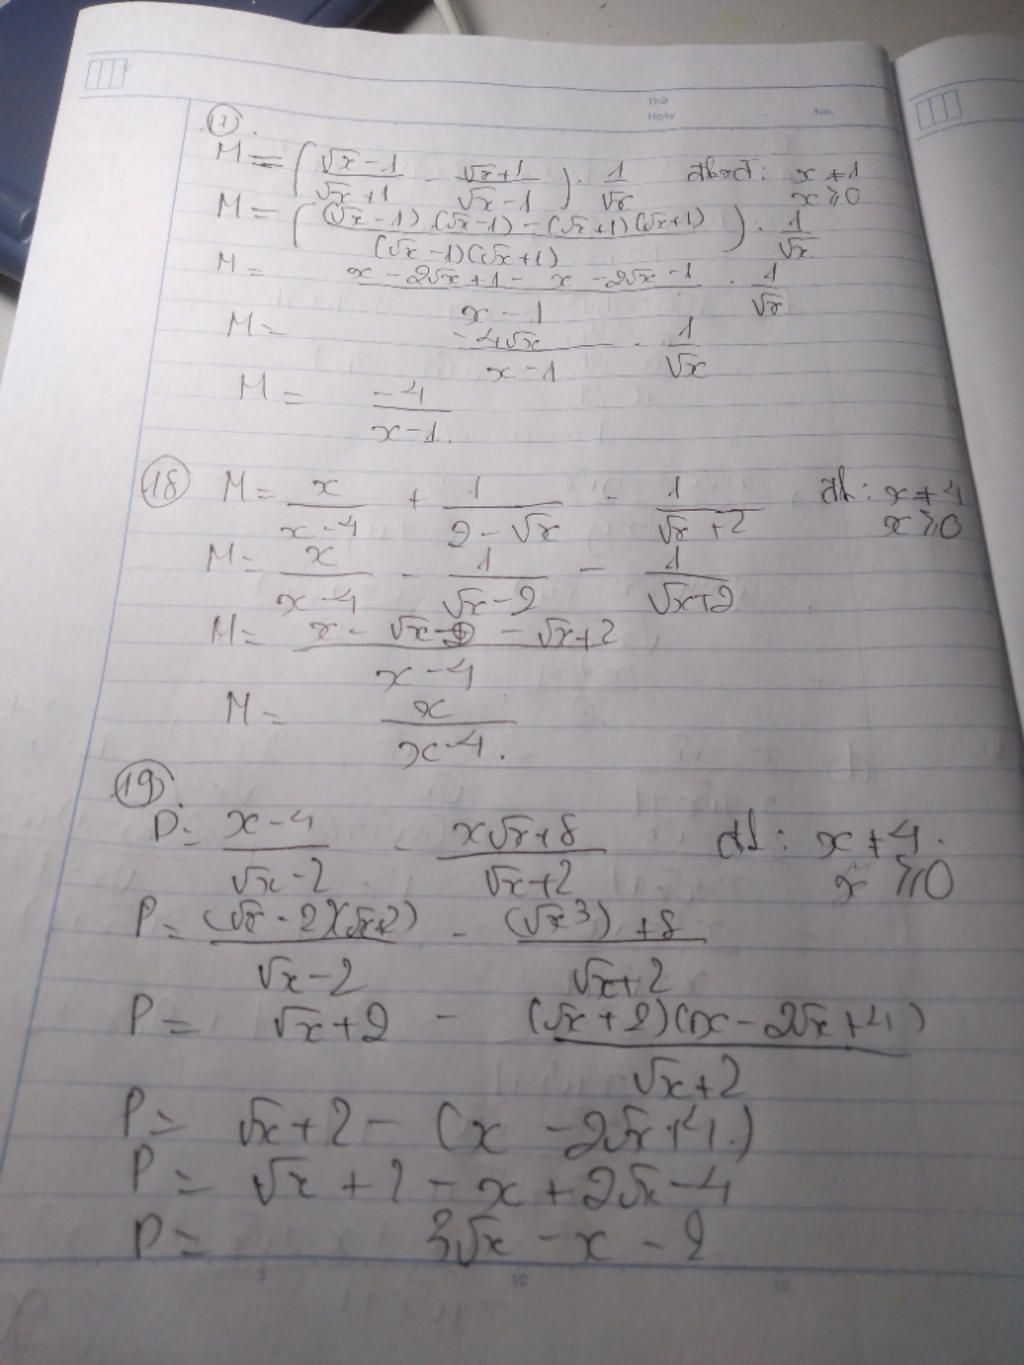 Thứ
Ngày No.
①.
M = ( (√x - 1)/(√x + 1) - (√x + 1)/(√x - 1) ) . 1/√x đkxđ: x ≠ 1
x ≥ 0
M = ( ((√x - 1).(√x - 1) - (√x + 1)(√x + 1))/((√x - 1)(√x + 1)) ) . 1/√x
M = (x - 2√x + 1 - x - 2√x - 1)/(x - 1) . 1/√x
M = (-4√x)/(x - 1) . 1/√x
M = (-4)/(x - 1).
⑱ M = x/(x - 4) + 1/(2 - √x) - 1/(√x + 2) đk: x ≠ 4
x ≥ 0
M = x/(x - 4) - 1/(√x - 2) - 1/(√x + 2)
M = (x - √x - 2 - √x + 2)/(x - 4)
M = x/(x - 4).
⑲.
P = (x - 4)/(√x - 2) - (x√x + 8)/(√x + 2) đk: x ≠ 4.
x ≥ 0
P = ((√x - 2)(√x + 2))/(√x - 2) - ((√x³) + 8)/(√x + 2)
P = √x + 2 - ((√x + 2)(x - 2√x + 4))/(√x + 2)
P = √x + 2 - (x - 2√x + 4.)
P = √x + 2 - x + 2√x - 4
P = 3√x - x - 2
5 10 15